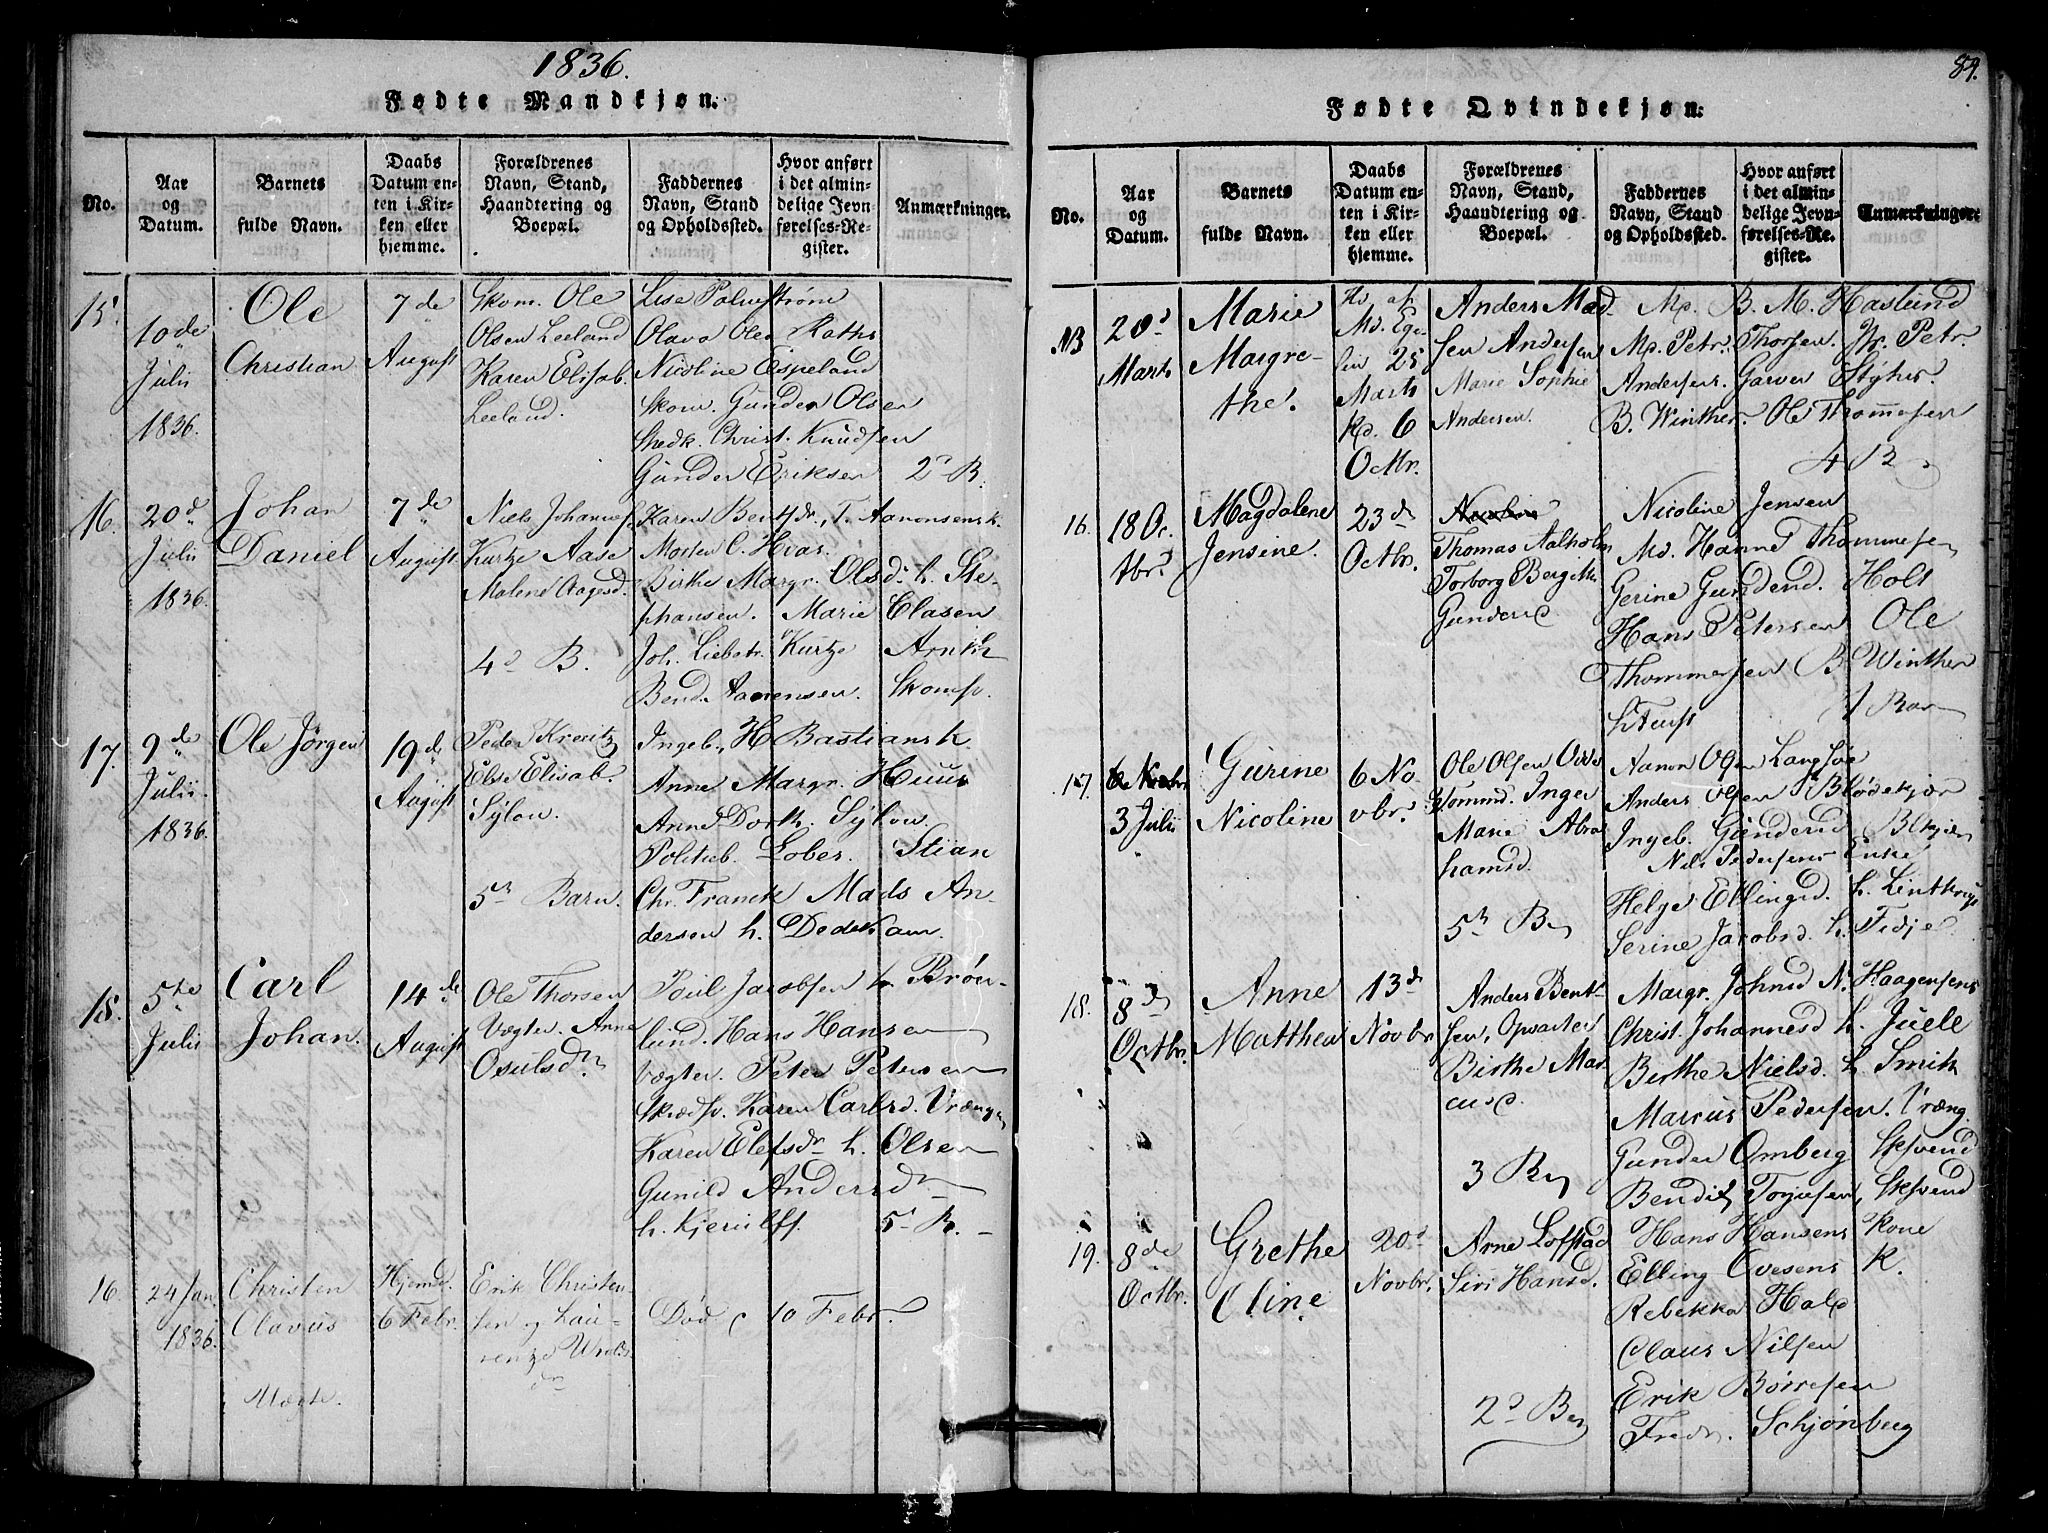 1836.
Fødte Mandkjøn.
No.
Aar
og
Datum.
Barnets
fulde Navn.
Daabs
Datum en-
ten i Kir-
ken eller
hjemme.
Forældrenes
Navn, Stand,
Haandtering og
Boepæl.
Faddernes
Navn, Stand
og Opholdssted.
Hvor anført
i det almin-
delige Jevn-
førelses-Re-
gister.
Anmærkninger.
15.
10de
Julii
1836.
Ole
Christian
7de
August
Skom. Ole
Olsen Leeland
Karen Elisab.
Leeland.
Lise Palmstrøm
Olava Ole
Nicoline Espeland
Skom. Gunder Olsen
Christ. Knudsen
Gunder Eriksen 2d B.
16.
20d
Julii
1836.
Johan
Daniel
7de
August
Niels Johannes
Kurtze Aase
Malene Aagesd.
4d B.
Karen T. Aanonsens k.
Morten C. Hvas
Birthe Margr. Olsd. h. Ste-
phansen. Marie Clasen
Joh. Liebstr. Kurtze
Bend. Aanensen. Skoms.
17.
9de
Julii.
1836.
Ole Jörgen
19de
August
Peder Kreutz
Else Elisab.
Sylow.
5te Barn.
Ingeb. H Bastians k.
Anne Margr. Huus
Anne Dorth. Sylow.
Politieb. Lober. Stian
Chr. Franck Mads An-
dersen h. Dedekam.
18.
5te
Julii
Carl
Johan.
14de
August
Ole Thorsen
Vægter. Anne
Osulsd.
Poul Jacobsen h. Bröu-
lund. Hans Hansen
Vægter. Peter Petersen
Skrædsv. Karen Carlsd. Vrænge
Karen Elefsdr h. Olsen
Gunild Andersdr
h. Kjerulff. 5. B.
16.
24 Jan.
1836.
Christen
Olavus
Uægte.
Hjemd.
6 Febr.
Erik Christen-
sen og Lau-
rentze
Död 10 Febr.
89.
Fødte Qvindekjøn.
No.
Aar
og
Datum.
Barnets
fulde Navn.
Daabs
Datum en-
ten i Kir-
ken eller
hjemme.
Forældrenes
Navn, Stand,
Haandtering og
Boepæl.
Faddernes
Navn, Stand
og Opholdssted.
Hvor anført
i det almin-
delige Jevn-
førelses-Re-
gister.
Anmærkninger.
NB
20d
Marts
Marie
Margre-
the.
Hd. af
Md. Ege-
lin 25
Marts
Kd. 6
Octbr.
Anders Mad-
sen Andersen
Marie Sophie
Andersen.
B. M. Haslund
Petr. Thorsen. Hr. Petr.
Andersen. Garver Styhr.
B. Winther. Ole Thommesen
4 B
16.
18 Oc-
tbr.
Magdalene
Jensine.
23d
Octbr.
Thomas Aalholm
Torborg Bergithe
Gunders
Nicoline Jensen
Md. Hanne Thommesen
Gerine Gundersd. Holt
Hans Petersen Ole
Thommesen B. Winther
1 Barn
17.
3 Julii
Gurine
Nicoline
6 No-
vbr.
Ole Olsen
Tømmd. Inger
Marie Abra-
hamsd.
5te B
Aanon Olsen Langsöe
Anders Olsen Blødekjær
Ingeb. Gundersd
Nils Pedersens Enke
Helge Ellingsd. h.
Serine Jacobsd. h. Fidje
18.
8d
Octbr.
Anne
Matthea
13d
Novbr.
Anders Bent-
sen, Opvarter
Birthe Mar-
cusd.
3 B
Margr. Johnsd N. Haagensens
Christ. Johannesd h. Juele
Berthe Nielsd. h. Smith
Marcus Pedersen. Vræng
Gunder Omberg Sksvend
Bendit Torjusen, Sksvend
19.
8de
Octbr.
Grethe
Oline
20d
Novbr.
Arne Lofstad
Siri Hansd.
2d B
Hans Hansens Kone
Elling Ovesens K.
Rebekka Hals
Claus Nilsen
Erik Börresen
Fredr. Schjönberg